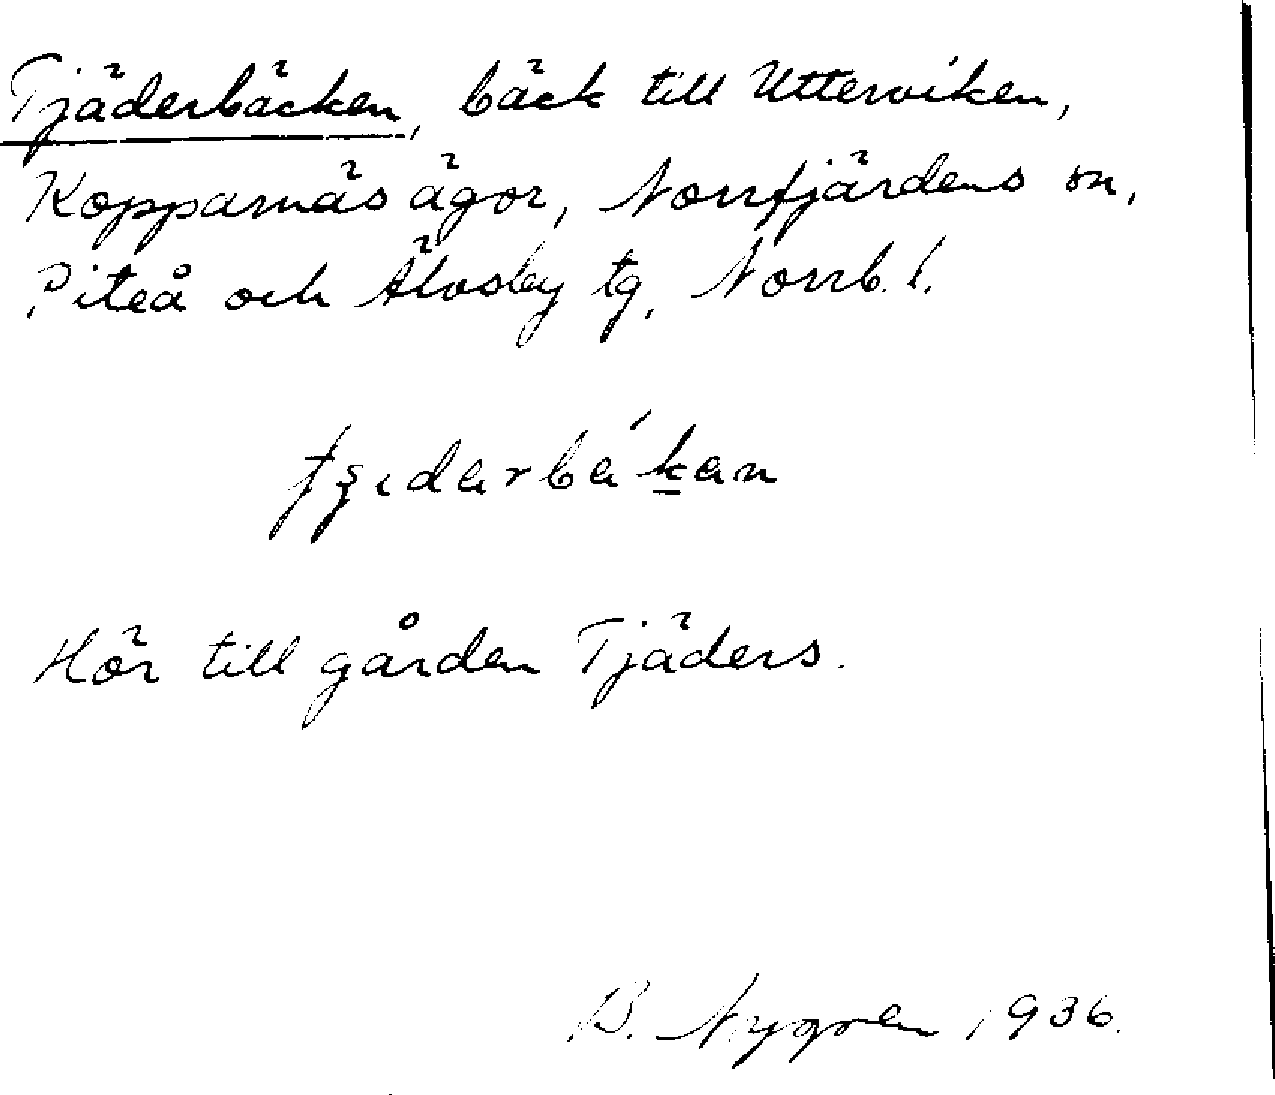 Tjäderbäcken, bäck till Utterviken,
Kopparnäs ägor, Norrfjärdens sn,
Piteå och Älvsby tg, Norrb. l.
Hör till gården Tjäders.
B. Nygren 1936.